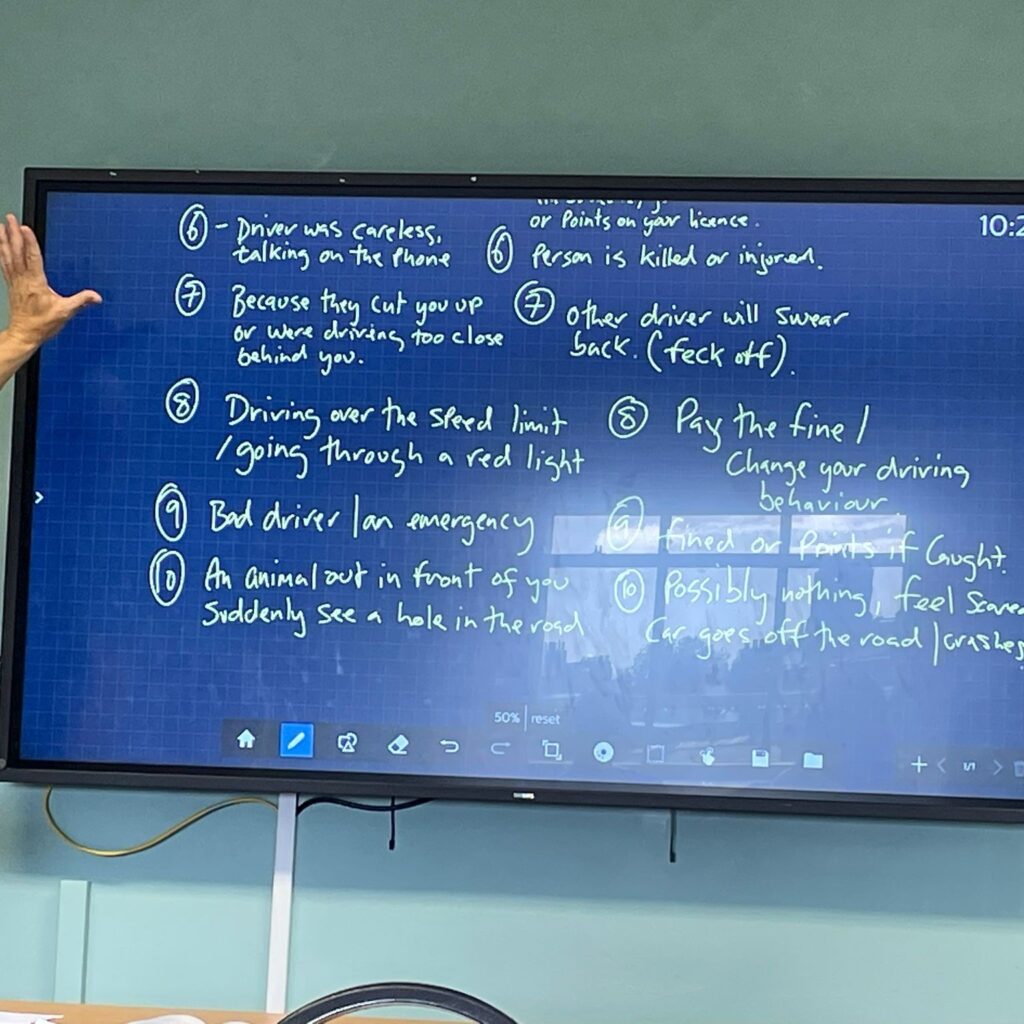 ⑥ - Driver was careless,
talking on the phone
⑦ Because they cut you up
or were driving too close
behind you.
⑧ Driving over the speed limit
/going through a red light
⑨ Bad driver / an emergency
⑩ An animal out in front of you
Suddenly see a hole in the road
or Points on your licence.
⑥ Person is killed or injured.
⑦ other driver will swear
back. (feck off).
⑧ Pay the fine /
Change your driving
behaviour
⑨ fined or Points if Caught.
⑩ Possibly nothing, feel Scared
Car goes off the road / crashes
10:2
50% | reset
1/1